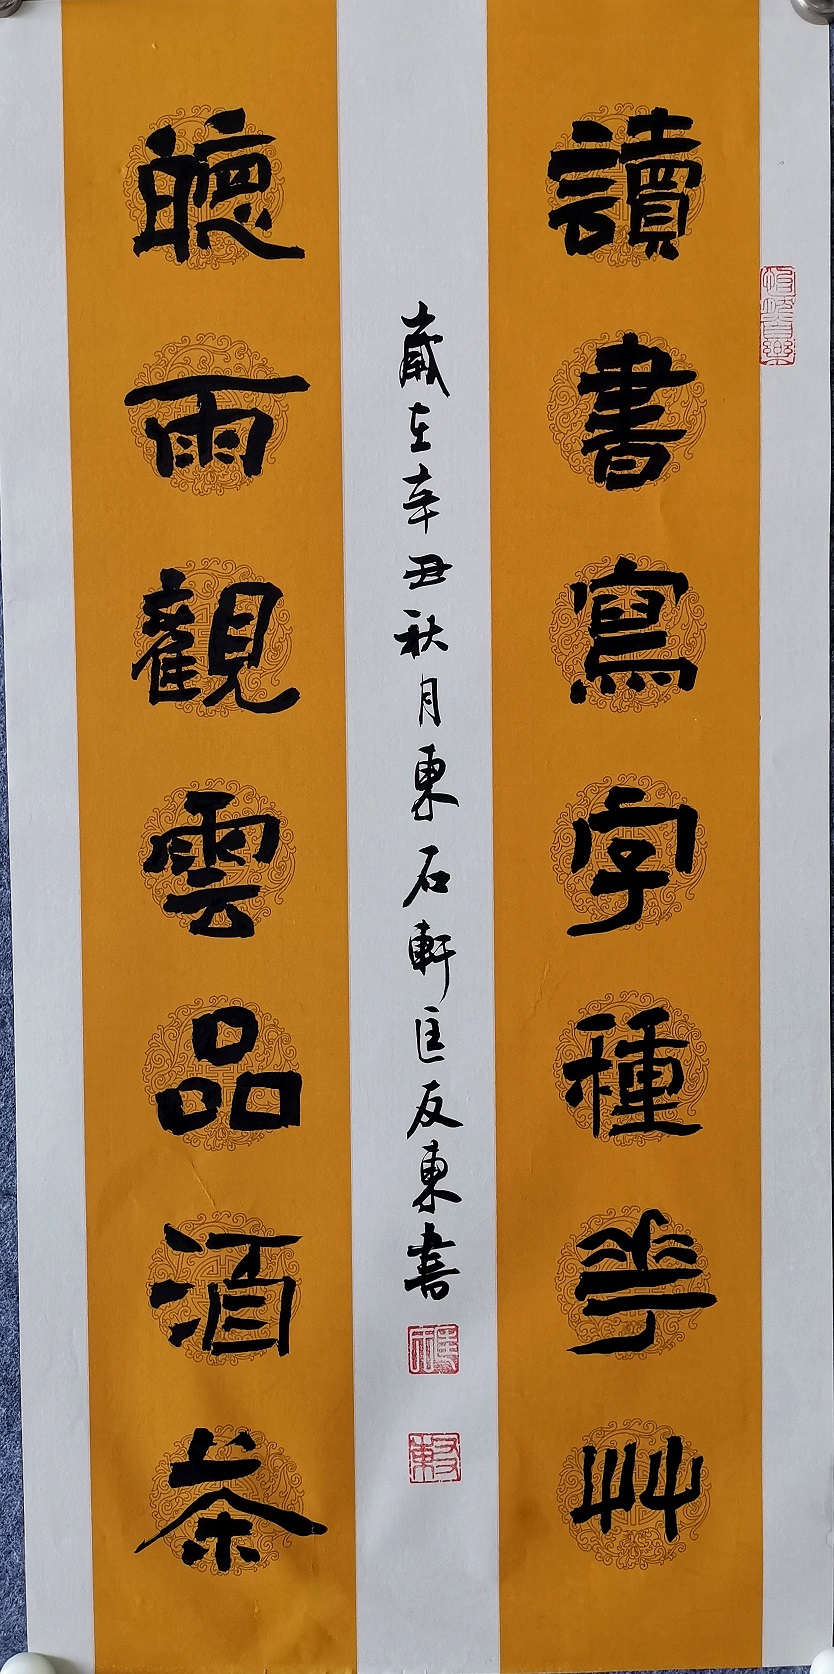 讀書寫字種華艸
聽雨觀雲品酒茶
歲在辛丑秋月東石軒匡友東書